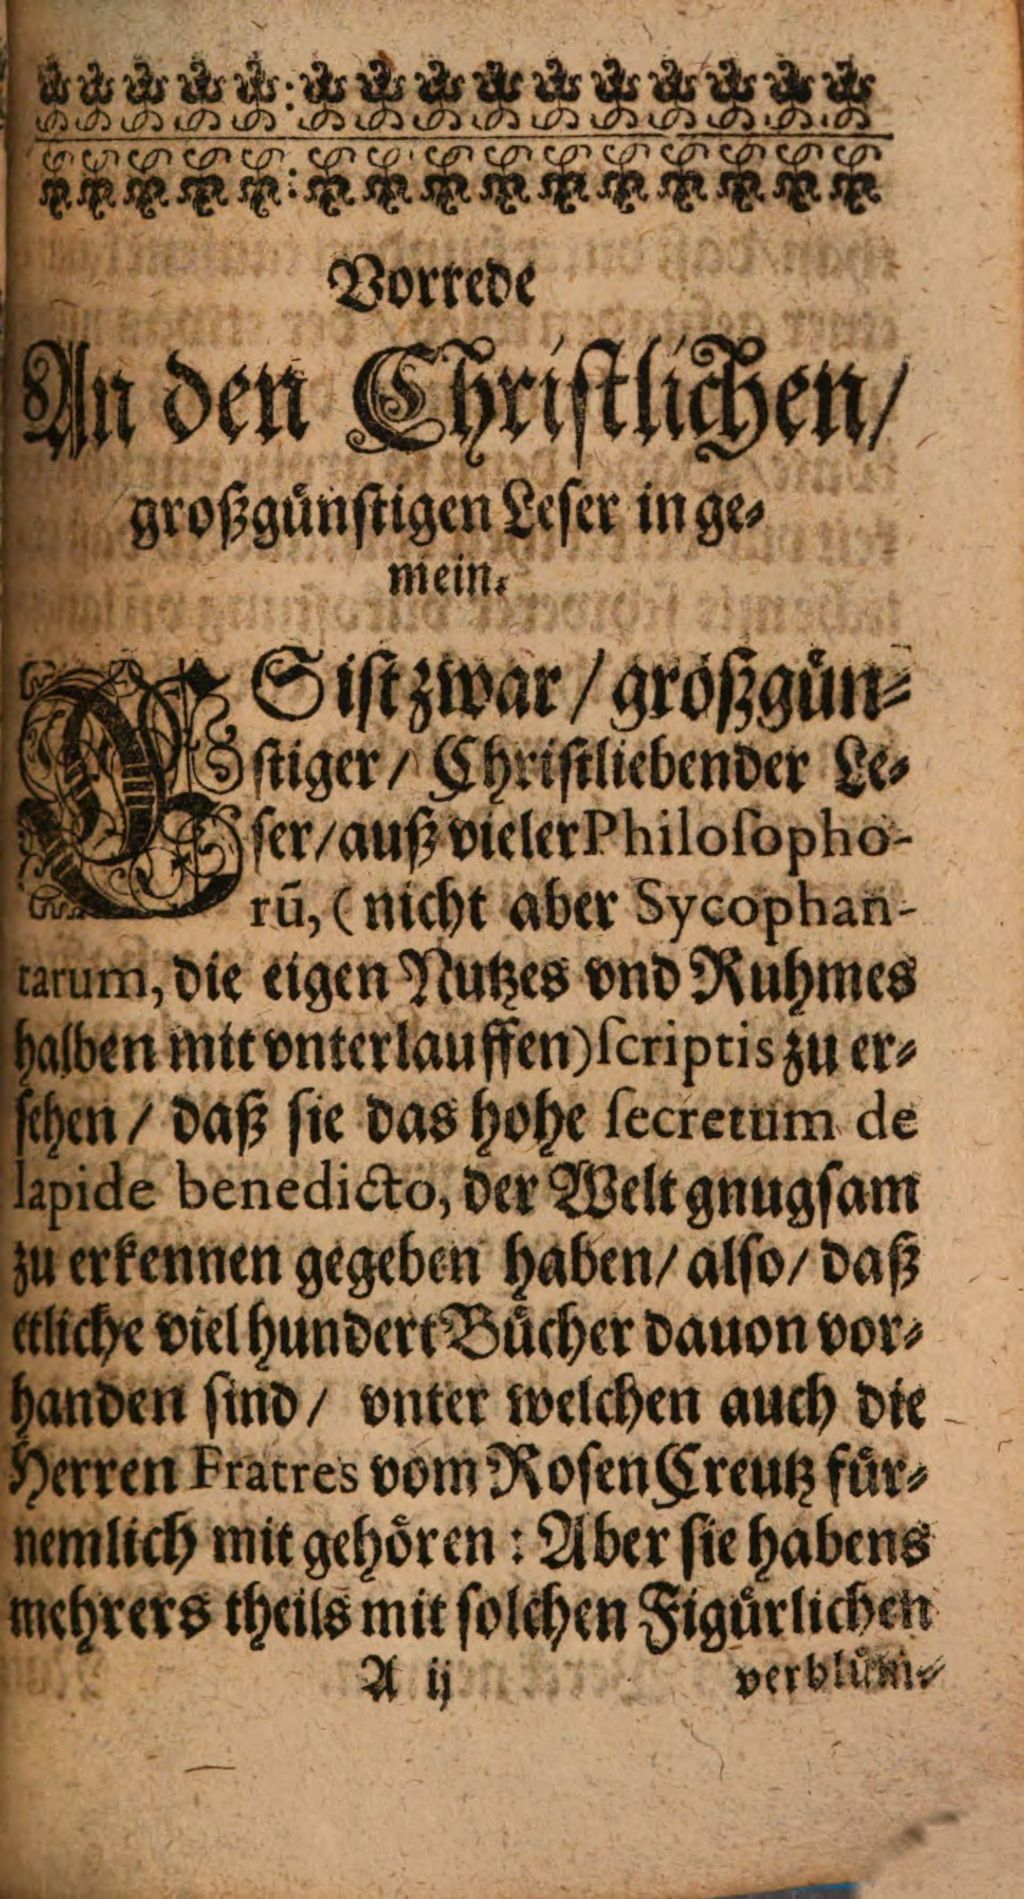 Vorrede
An den Christlichen/
großgünstigen Leser in ge-
mein.
ES ist zwar / großgün-
stiger / Christliebender Le-
ser/auß vieler Philoſopho-
rū, (nicht aber Sycophan-
tarum, die eigen Nutzes vnd Ruhmes
halben mit vnterlauffen) ſcriptis zu er-
sehen / daß sie das hohe ſecretum de
lapide benedicto, der Welt gnugsam
zu erkennen gegeben haben/ also/ daß
etliche viel hundert Bücher dauon vor-
handen sind/ vnter welchen auch die
Herren Fratres vom RosenCreutz für-
nemlich mit gehören : Aber sie habens
mehrers theils mit solchen Figürlichen
A ij verblüm-